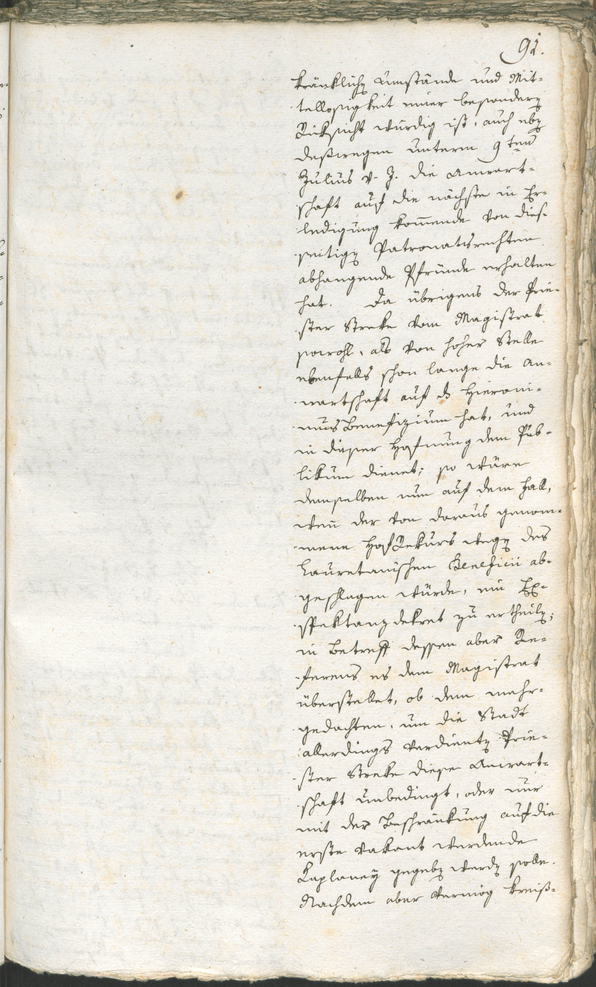 91.
kränkliche Umstände und Mit-
tellosigkeit einer besondern
Rüksicht würdig ist, auch eben
deßwegen unterm 9ten
Julius v. J. die Anwart-
schaft auf die nächste in Er-
ledigung kommende von dies-
seitigen Patronatsrechten
abhangende Pfründe erhalten
hat. Da übrigens der Prie-
ster Streke vom Magistrat
sowohl, als von hoher Stelle
ebenfalls schon lange die An-
wartschaft auf d. Hieroni-
mus Benefizium hat, und
in dieser Hofnung dem Pub-
likum dienet; so wäre
demselben nun auf dem Fall,
wenn der von daraus genom-
mene Hof Rekurs wegen des
Lauretanischen Beneficii ab-
geschlagen würde, ein Ex-
spektanzdekret zu ertheilen;
in Betreff dessen aber Re-
ferens es dem Magistrat
überstellet, ob dem mehr-
gedachten, um die Stadt
allerdings verdienten Prie-
ster Streke diese Anwart-
schaft unbedingt, oder nur
mit der Beschränkung auf die
erste vakant werdende
Kaplaney gegeben werden solle.
Nachdem aber vermög kreiß-